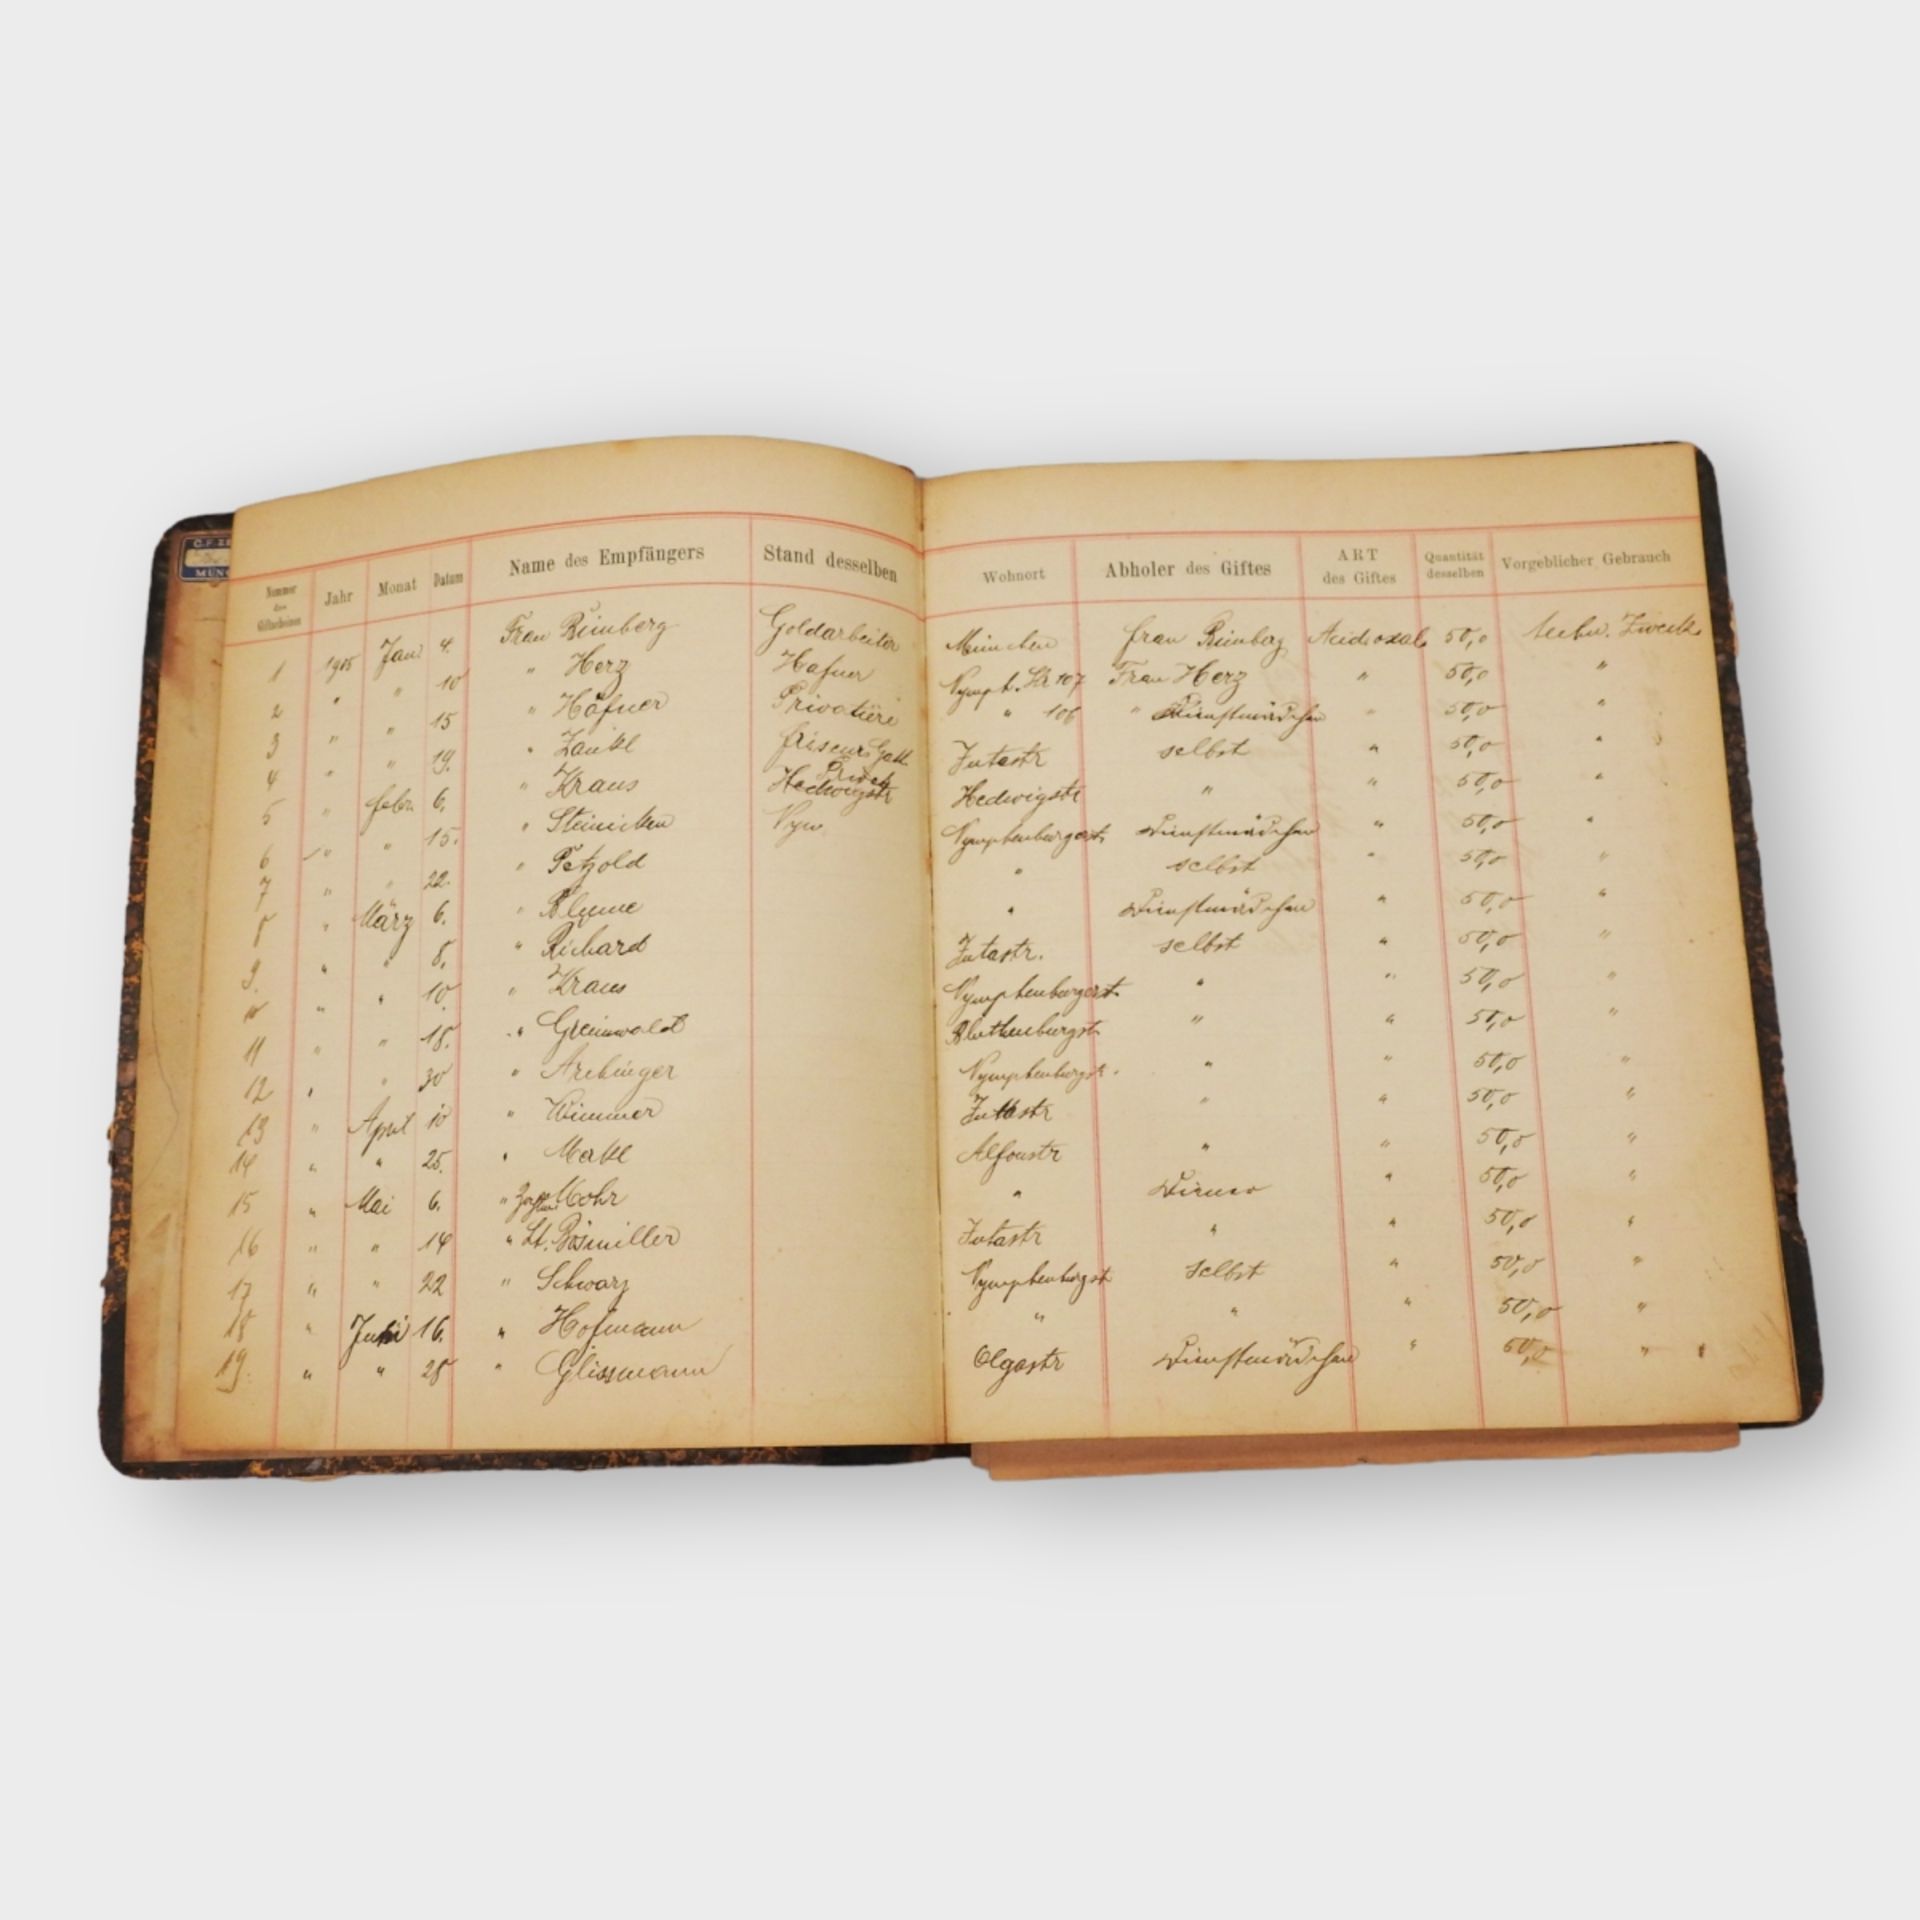 C. F. ZE
MÜNC
Nummer des Giftscheines Jahr Monat Datum Name des Empfängers Stand desselben Wohnort Abholer des Giftes ART des Giftes Quantität desselben Vorgeblicher Gebrauch
1 1905 Jan. 4. Frau Rimberg Goldarbeiter München Frau Rimberg Acid. oxal. 50,0 techn. Zweck.
2 " " 10 " Herz Hafner Nymph. Str 107 Frau Herz " 50,0 "
3 " " 15 " Häfner Privatière " 106 " Dienstmädchen " 50,0 "
4 " " 19. " Zankl Friseurs Jutastr selbst " 50,0 "
5 " Febr. 6. " Kraus Privat Hedwigstr Hedwigstr " " 50,0 "
6 " " 15. " Steinicken Nym Nymphenburgerst. Dienstmädchen " 50,0 "
7 " " 22. " Petzold " selbst " 50,0 "
8 " März 6. " Blume " Dienstmädchen " 50,0 "
9. " " 8. " Richard Jutastr. selbst " 50,0 "
10 " " 10. " Kraus Nymphenburgerst. " " 50,0 "
11 " " 18. " Greinwald Bluthenburgst. " " 50,0 "
12 " " 30 " Nymphenburgstr. " " 50,0 "
13 " April 10 " Wimmer Jutastr " " 50,0 "
14 " " 25. " Merkl Alfonstr " " 50,0 "
15 " Mai 6. " Mohr " Diener " 50,0 "
16 " " 14 " Lt. Bösmiller Jutastr " " 50,0 "
17 " " 22 " Schwarz Nymphenburgst selbst " 50,0 "
18 " Juni 16. " Hofmann " " " 50,0 "
19. " " 28 " Glissmann Olgastr Dienstmädchen " 50,0 "